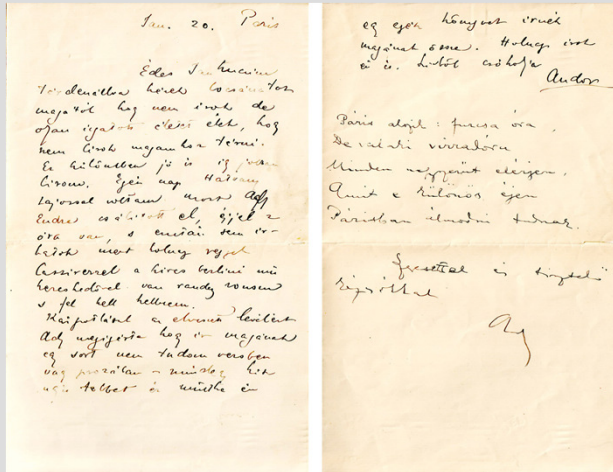 Jan. 20. Páris
Édes
bocsánatot
magától hog nem irok de
olyan életet élek, hog
nem birok magamhoz térni.
Ez különben jó is ig
birom. Egész nap Hatvany
Lajossal voltam most Ady
Endre csábitott el, éjjel 2
óra van, s emián sem ir-
hatok mert holnap reggel
Cassirerrel a hires berlini mü
kereskedövel van randez vousem
s fel kell kelnem.
Kárpótlásul az elveszett levélért
Ady megigérte hog ir magának
eg sort nem tudom versben
vag prozában – mindeg
többet ér mintha én
eg egész könyvet irnék
magának össze. Holnap irok
én is. csókolja
Andor
Páris alszik: furcsa óra,
De valaki virradóra
Minden elérjen,
Amit e különös éjen
Párisban álmodni tudnak.
és
kézcsókkal
Ady